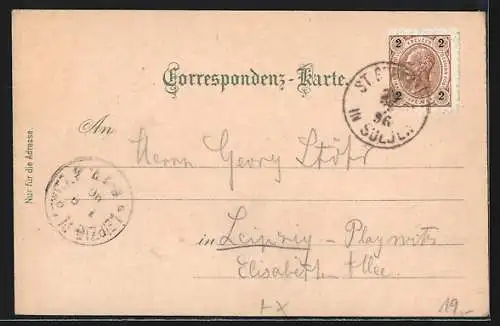 Correspondenz-Karte.
2 2
2 2
ST.
96
IN SÖLDEN
An
Herrn Georg Stöhr
Nur für die Adresse.
LEIPZIG
in Leipzig - Plagwitz
Elisabeth Allee
19.-